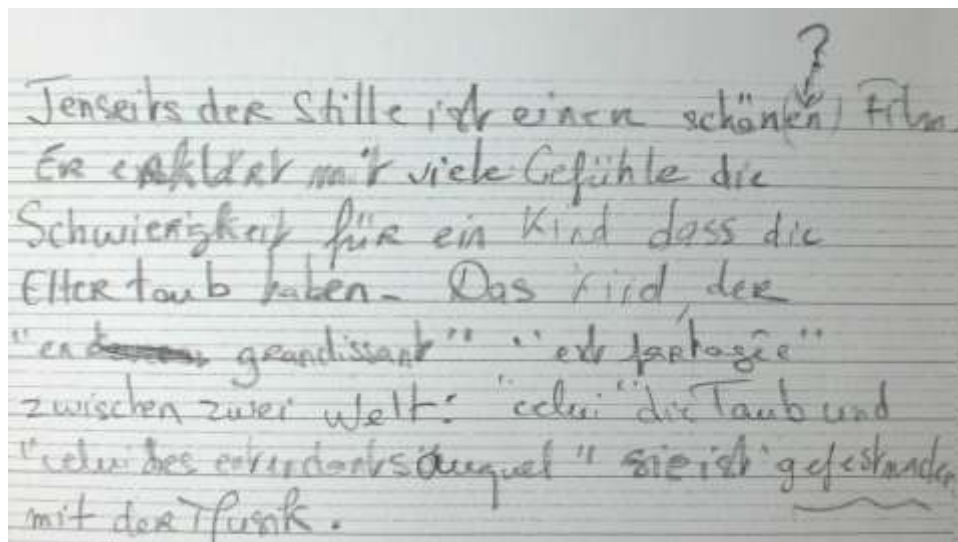 ?
Jenseits der Stille ist einen schön(en) Film.
Er erklärt mit viele Gefühle die
Schwierigkeit für ein Kind dass die
Elter taub haben. Das Kind, der
"en grandissant" "est partagée"
zwischen zwei Welt: "celui" die Taub und
"celui des entendants auquel" sie ist gefestunden
mit der Musik.